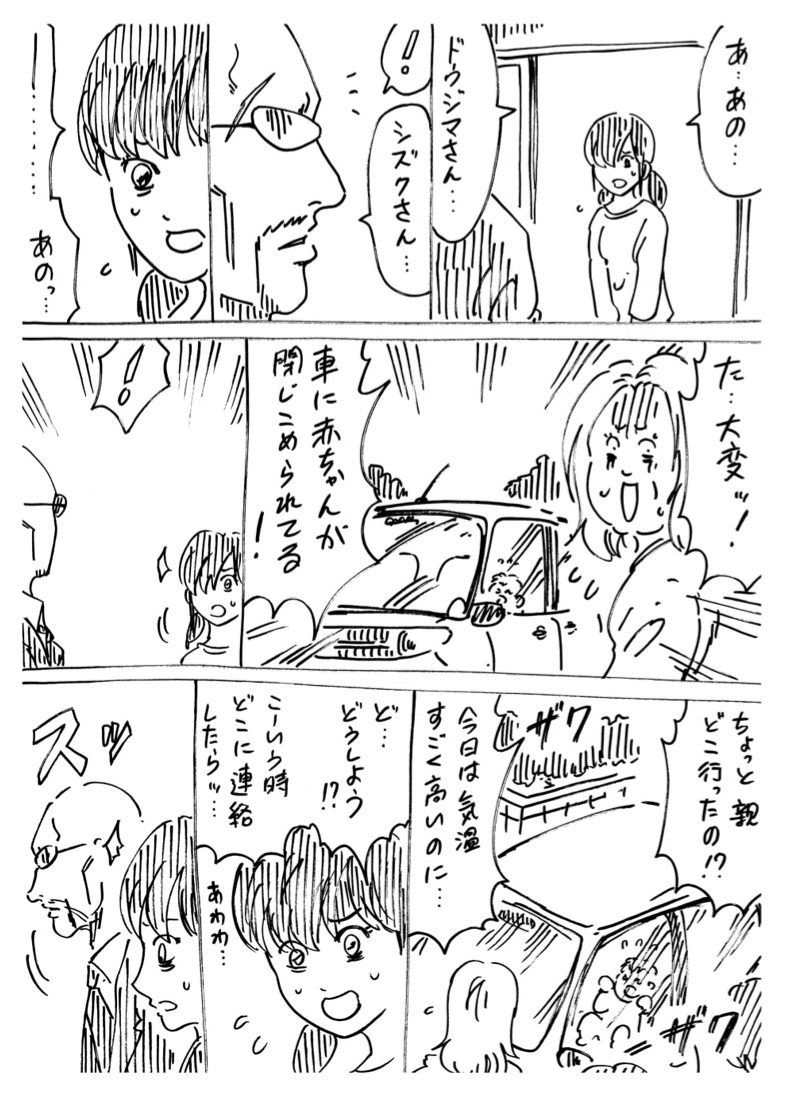 あ…あの…
ドウジマさん…
！
シズクさん…
…………
あのっ…
た…大変ッ！
車に赤ちゃんが
閉じこめられてる！
！
ちょっと親
どこ行ったの!?
ザワ
今日は気温
すごく高いのに…
ザワ
ど…
どうしよう
!?
こーいう時
どこに連絡
したらッ…
あわわ…
スッ